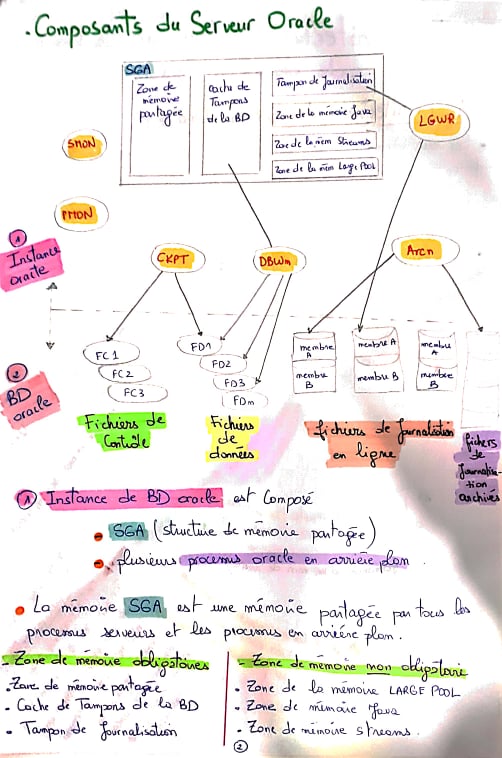 . Composants du Serveur Oracle
SGA
Zone de
mémoire
partagée
Cache de
Tampons
de la BD
Tampon de Journalisation
Zone de la mémoire Java
Zone de la mém Streams
Zone de la mém Large Pool
LGWR
SMON
PMON
① Instance
oracle
CKPT
DBWn
Arcn
② BD
oracle
FC1
FC2
FC3
FD1
FD2
FD3
FDm
membre
A
membre
B
membre A
membre B
membre
A
membre
B
Fichiers de
Contrôle
Fichiers
de
données
fichiers de journalisation
en ligne
fichiers
de
Journalisa-
tion
archivés
① Instance de BD oracle est Composé
• SGA (structure de mémoire partagée)
• plusieurs processus oracle en arrière plan.
• La mémoire SGA est une mémoire partagée par tous les
processus serveurs et les processus en arrière plan.
- Zone de mémoire obligatoires
• Zone de mémoire partagée
• Cache de Tampons de la BD
• Tampon de Journalisation
- Zone de mémoire non obligatoire
• Zone de la mémoire LARGE POOL
• Zone de mémoire Java
• Zone de mémoire streams.
②